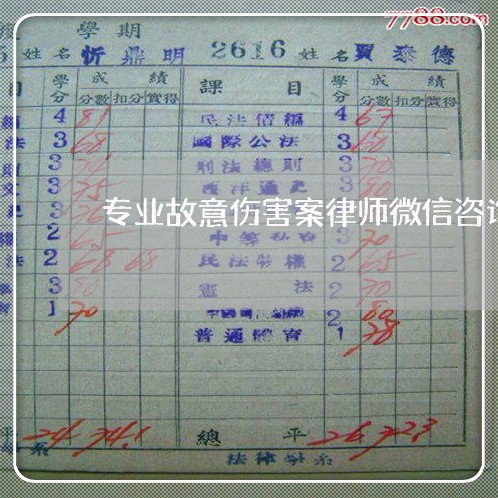 7788.com
學期
姓名 忻鼎明 2616 姓名 賈泰德
目 學分 成績 課目 學分 成績
分數 扣分 實得 分數 扣分 實得
4 81 民法債編 4 67
法 3 68 國際公法 3 60
3 刑法總則 3 70
3 75 西洋通史 3 80
专业故意伤害案律师微信咨询
2 65 3 70
法 2 68 68 民法物權 2 65
3 80 憲法 2 70
1 70 2 80
普通體育 1 78
平 24 74.1 總平 26 72.3
系 法律學系